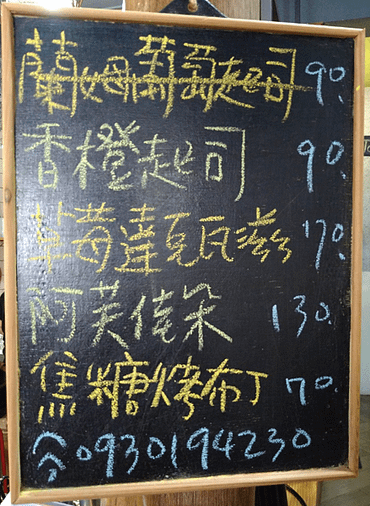 蘭姆葡萄起司 90.
香橙起司 90.
草莓達克瓦滋 170.
阿芙佳朵 130.
焦糖烤布丁 70.
☎0930194230